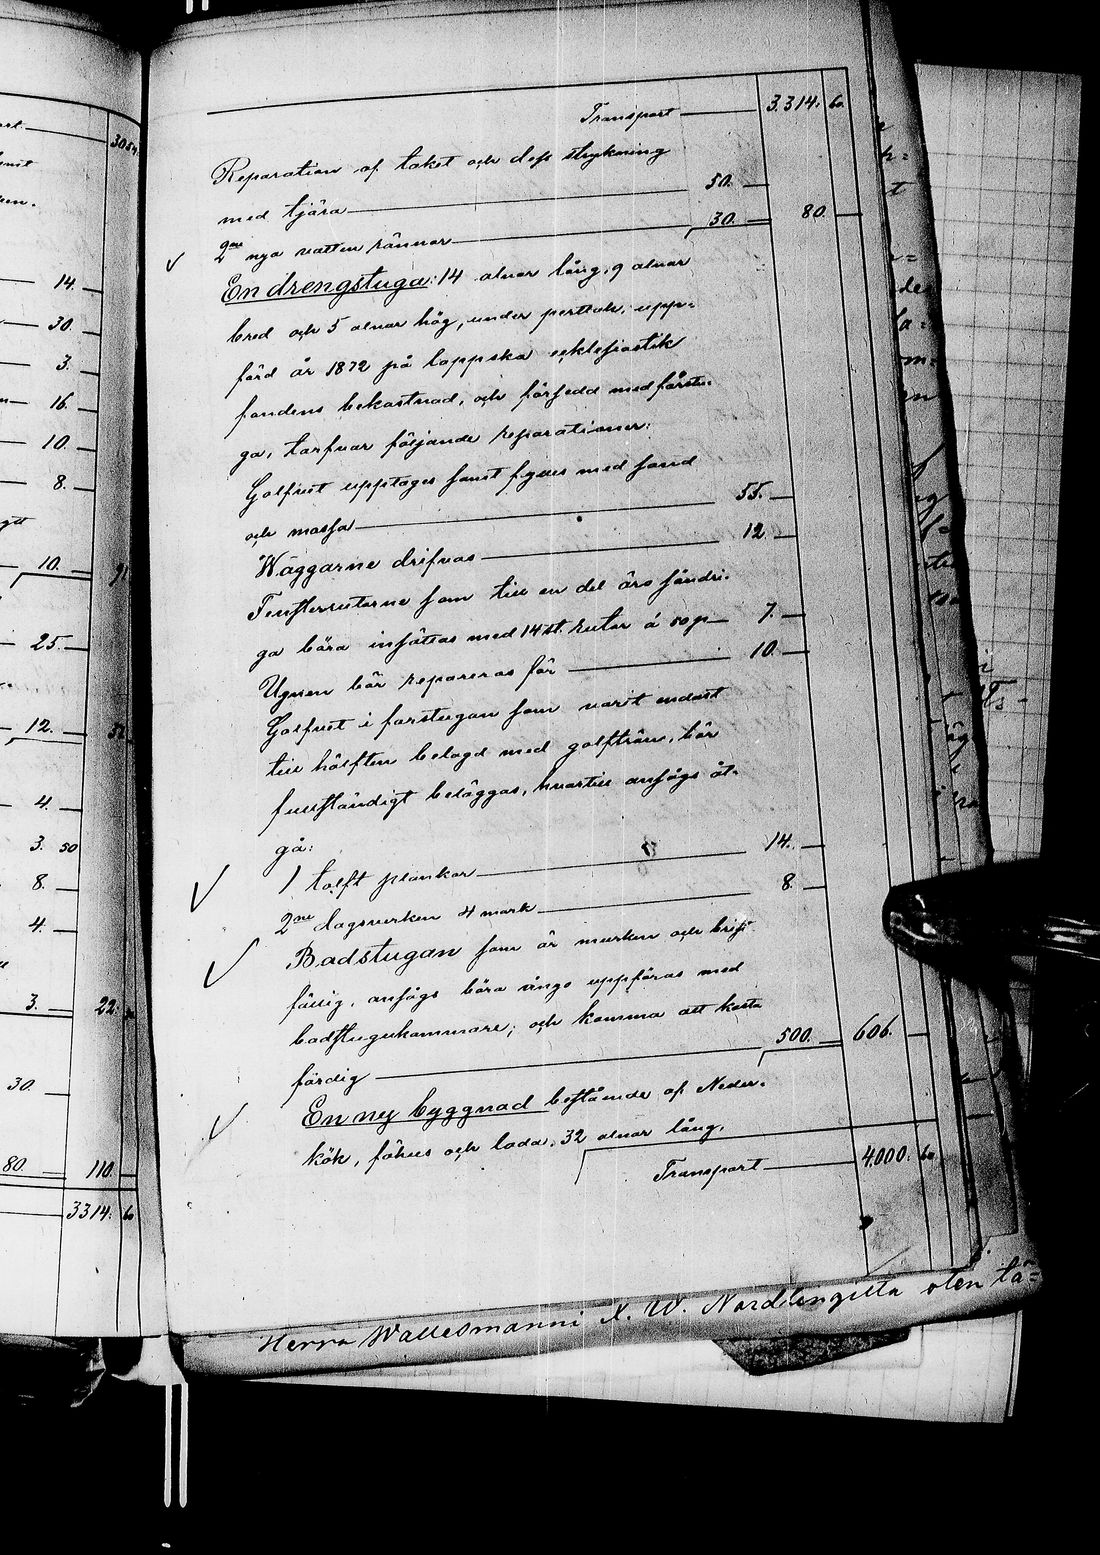 Transport — 3,314. 60
Reparation af taket och dess strykning
med tjära — 50. —
2ne nya vatten rännor — 30. — 80. —
En drengstuga: 14 alnar lång, 9 alnar
bred och 5 alnar hög, under perttak, upp-
förd år 1872 på lappska ecklesiastik
fondens bekostnad, och försedd med förstu-
ga, tarfvar följande reparationer:
Golfvet upptages samt fylles med sand
och mossa — 55. —
Wäggarne drifvas — 12 —
Fensterrutorne som till en del äro söndri-
ga böra insättas med 14 st. rutor á 50 p — 7. —
Ugnen bör repareras för — 10. —
Golfvet i farstugan som varit endast
till hälften belagd med golfträn, bör
fullständigt beläggas, hvartill anses åt-
gå:
1 tolft plankor — 14. —
2ne dagsverken 4 mark — 8. —
Badstugan som är murken och brist-
fällig, anses böra ånyo uppföras med
badstugukammare, och komma att kosta
färdig — 500. — 606. —
En ny byggnad bestående af Neder-
kök, fähus och lada, 32 alnar lång,
Transport — 4,000. 60
Herra Wallesmanni K. W. Nordlengilla oten tä=
3054.
14. —
30. —
3. —
16. —
10. —
8. —
10. —
25. —
12. —
4. —
3. 50
8. —
4. —
3. — 22.
30. —
80. — 110. —
3314. 60